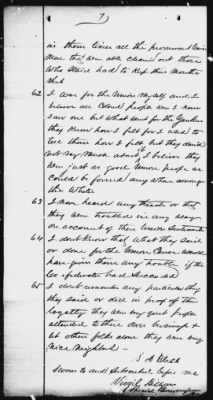 7)
in them times all the prominent
more that were able cleared out those
who staid had to keep their mouths
shut
62 I was for the Union Myself and I
believe all Colored people were I never
saw one but what went for the Yankees
they knew how I felt for I used to
tell them how I felt but they dident
not say much about it I believe they
were just as good Union people as
could be found any where among
the Whites
63 I never heard any threats or that
they were troubled in any way
on account of their Union Sentiments
64 I dont know that what they said
or done for the Union Cause would
have given them any trouble if the
Confederates had Succeeded
65 I dont remember any particular thing
they said or did in proof of their
loyalty they were very quiet people
attended to there own business &
let other folks alone they were very
nice Neighbors
S A
Sworn to and subscribed before me
Special Commissioner